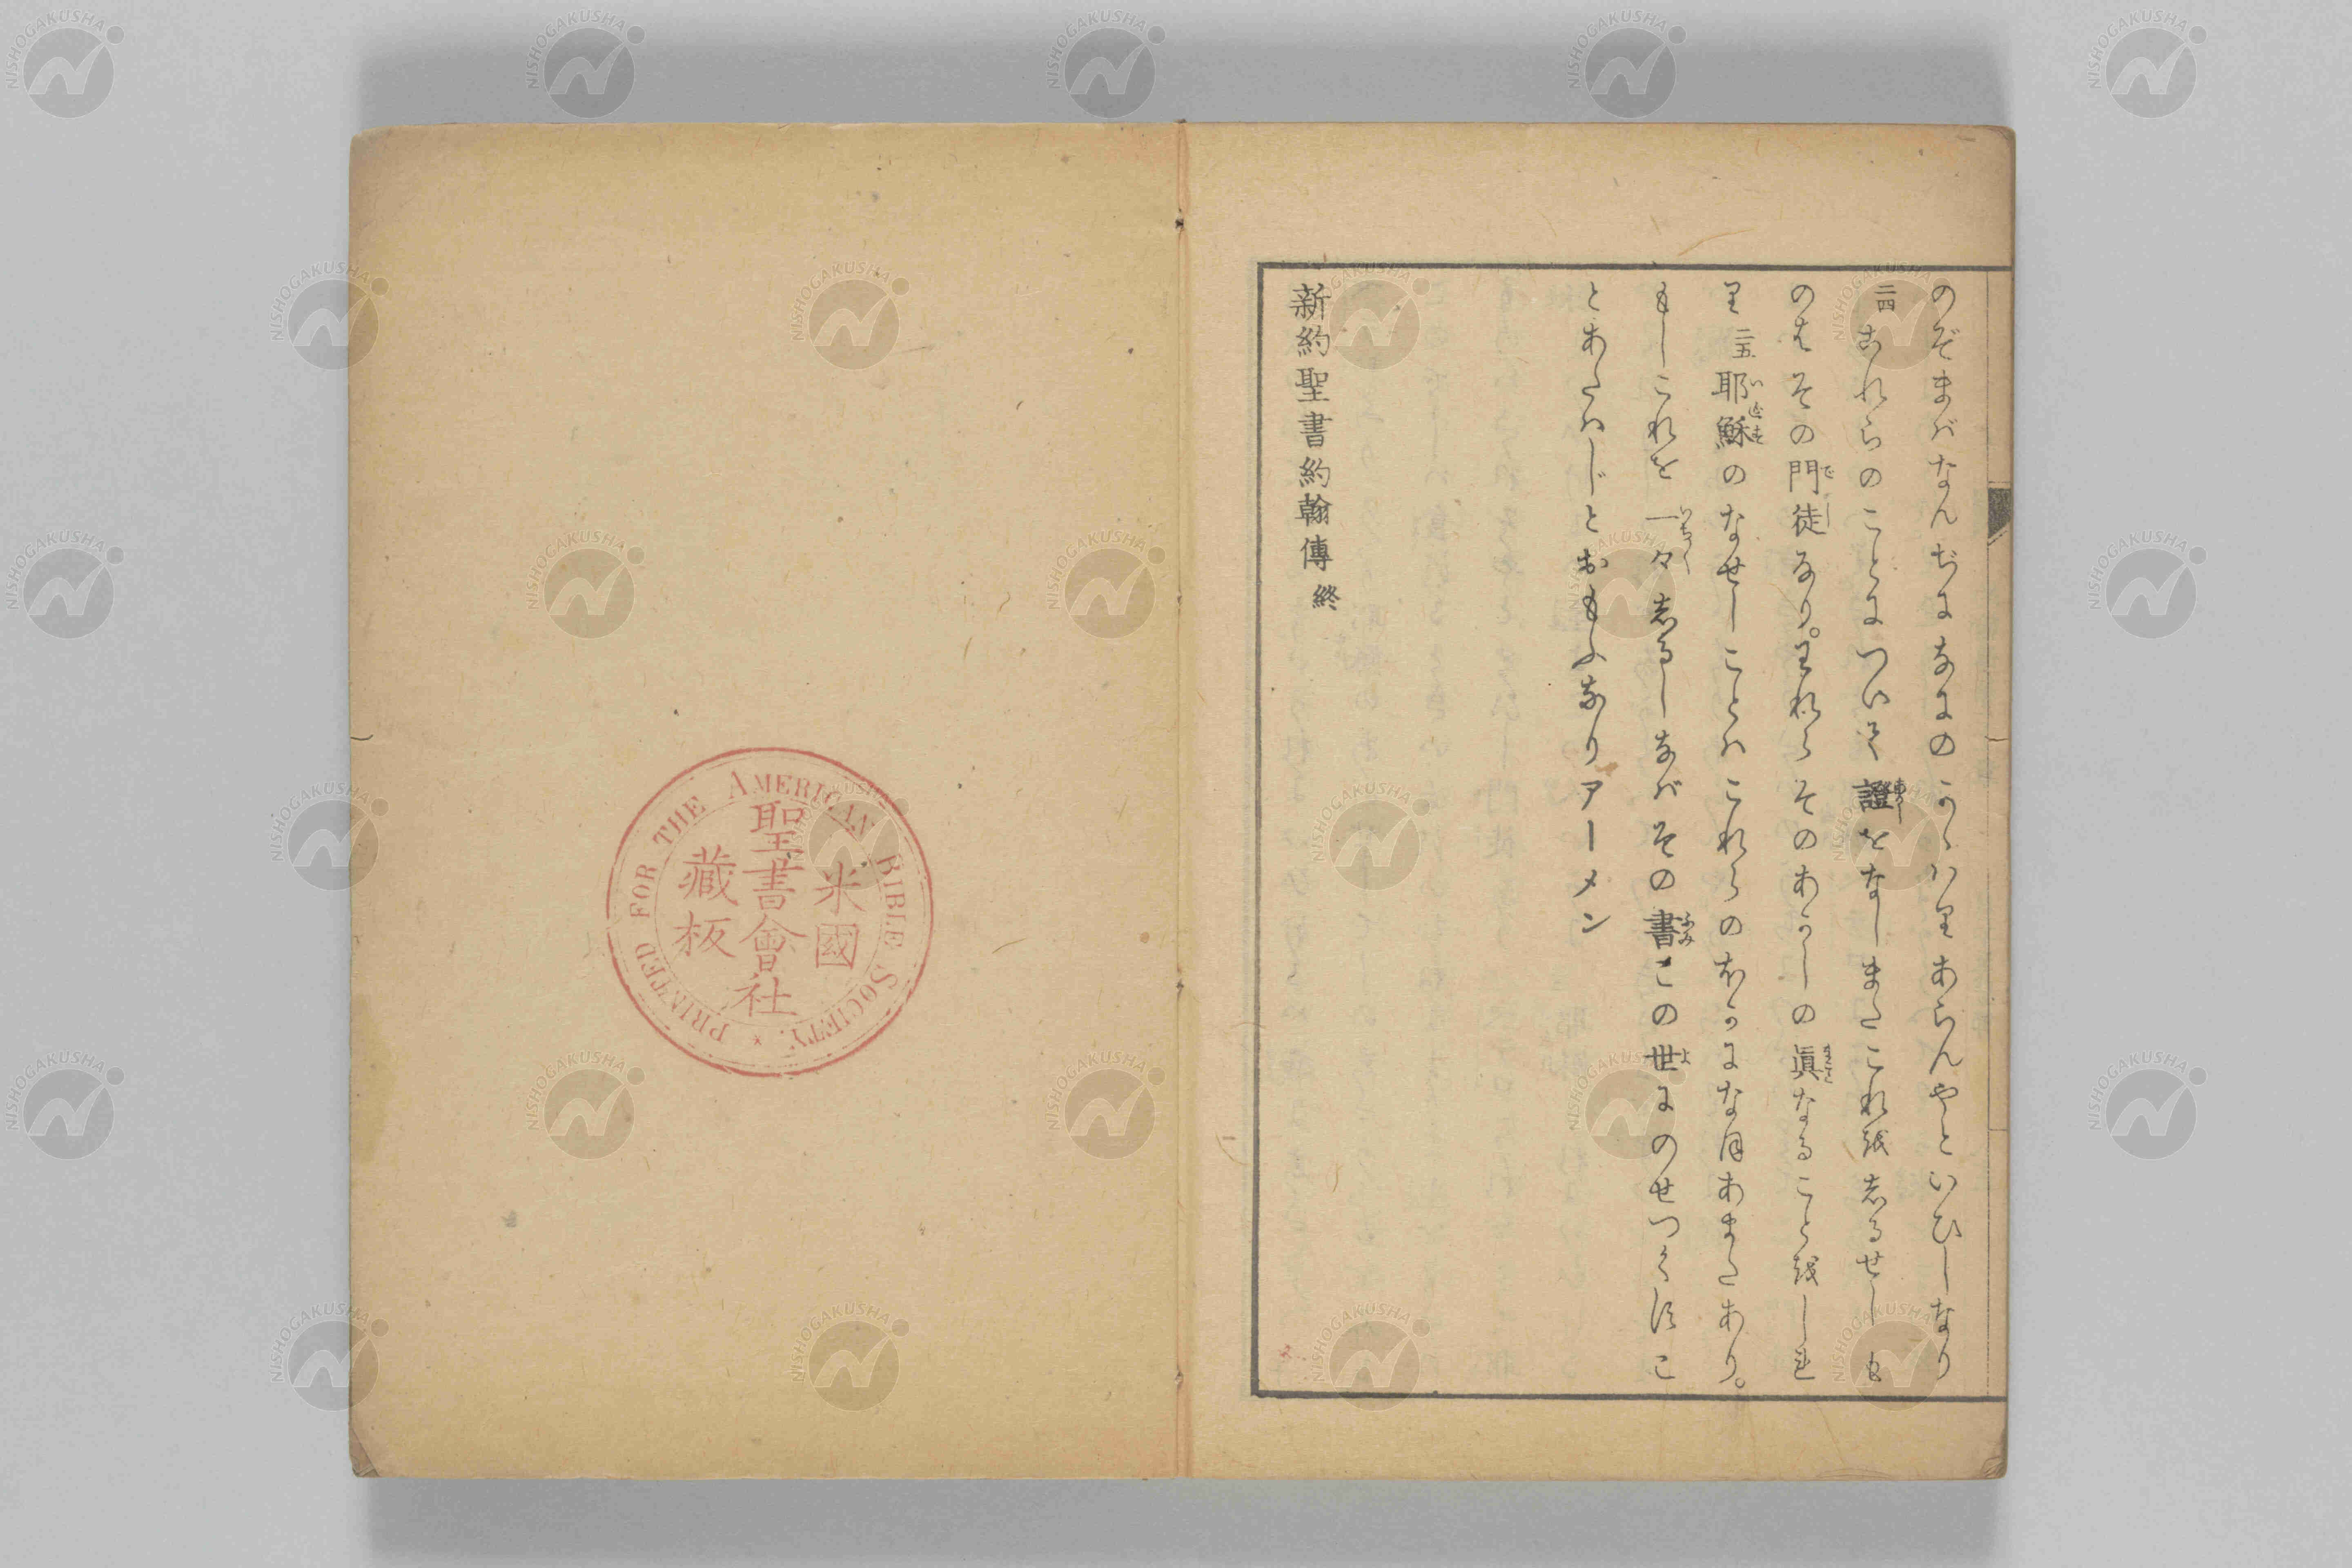 のぞまバなんぢになにのかゝハりあらんやといひしなり
二四 これらのことについて證をなしまたこれを志るせしも
のはその門徒なり。われらそのあかしの眞なることをしれ
り 二五 耶穌のなせしことハこれらのほかになほあまたあり。
もしこれを一々志るしなバその書この世にのせつくすこ
とあたハじとおもふなりアーメン
新約聖書約翰傳 終
PRINTED FOR THE AMERICAN BIBLE SOCIETY.
米國
聖書會社
藏板
NISHOGAKUSHA